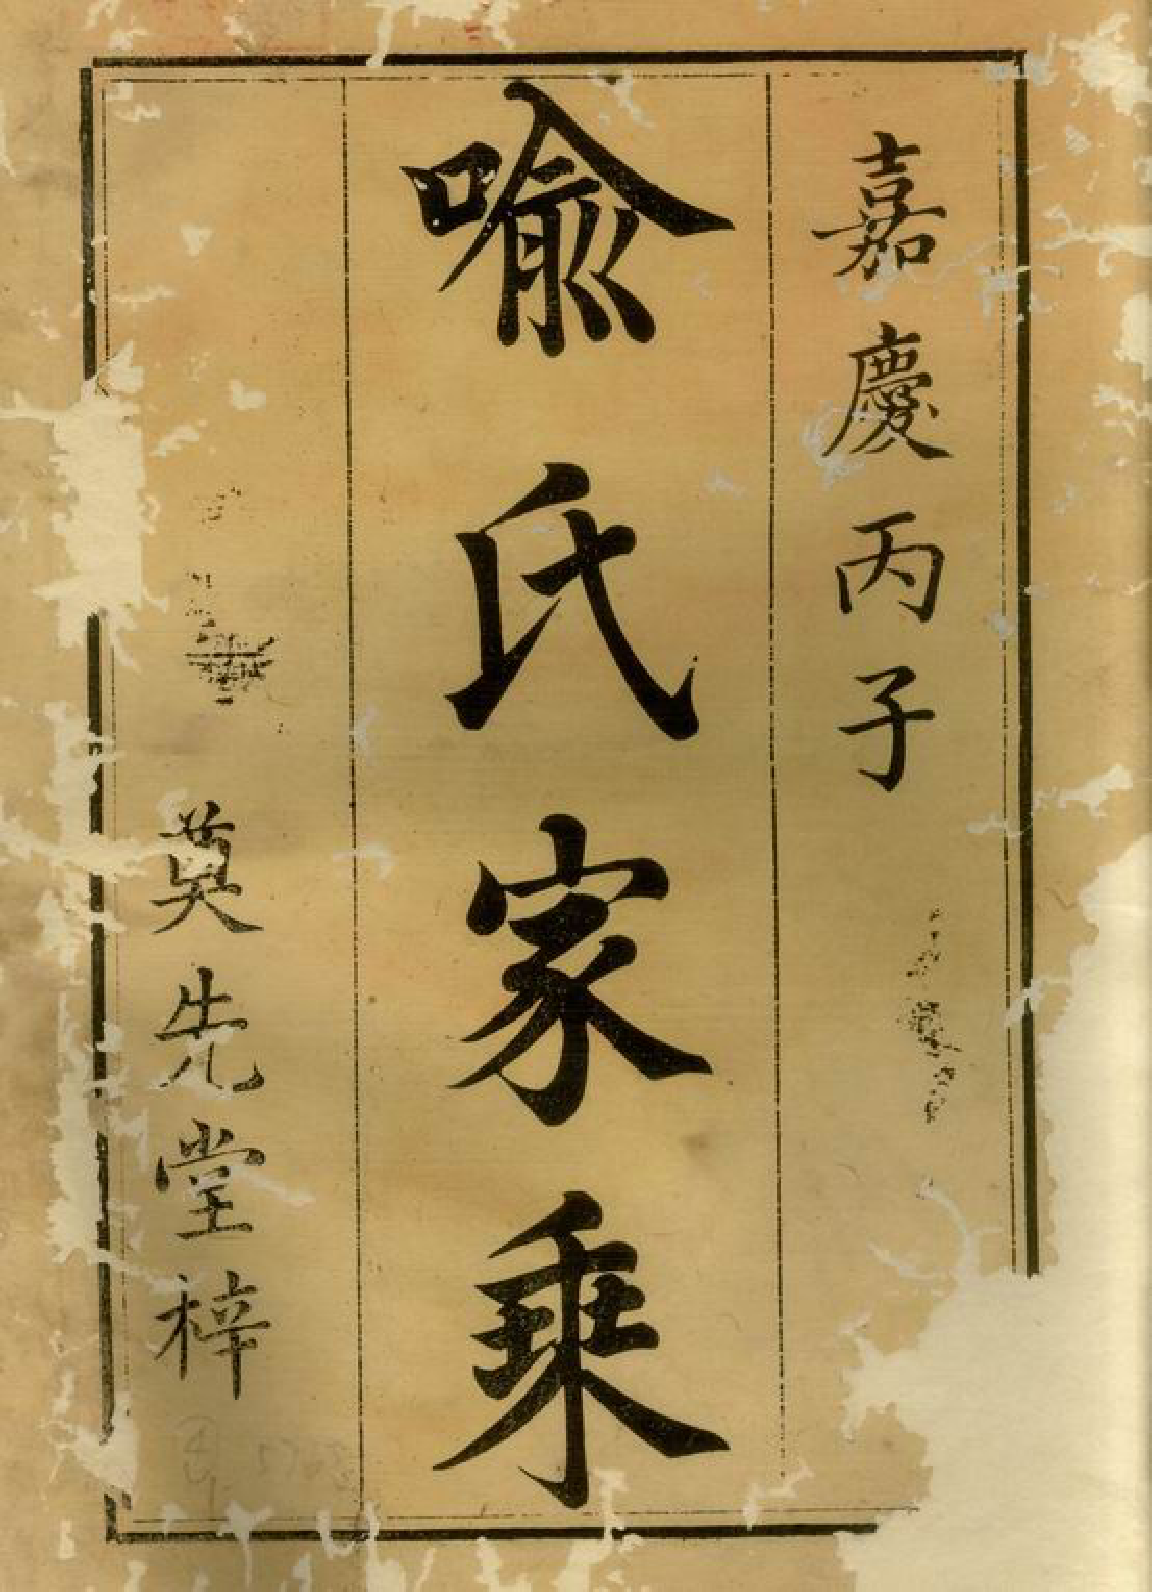 嘉慶丙子
喻氏家乘
先堂梓